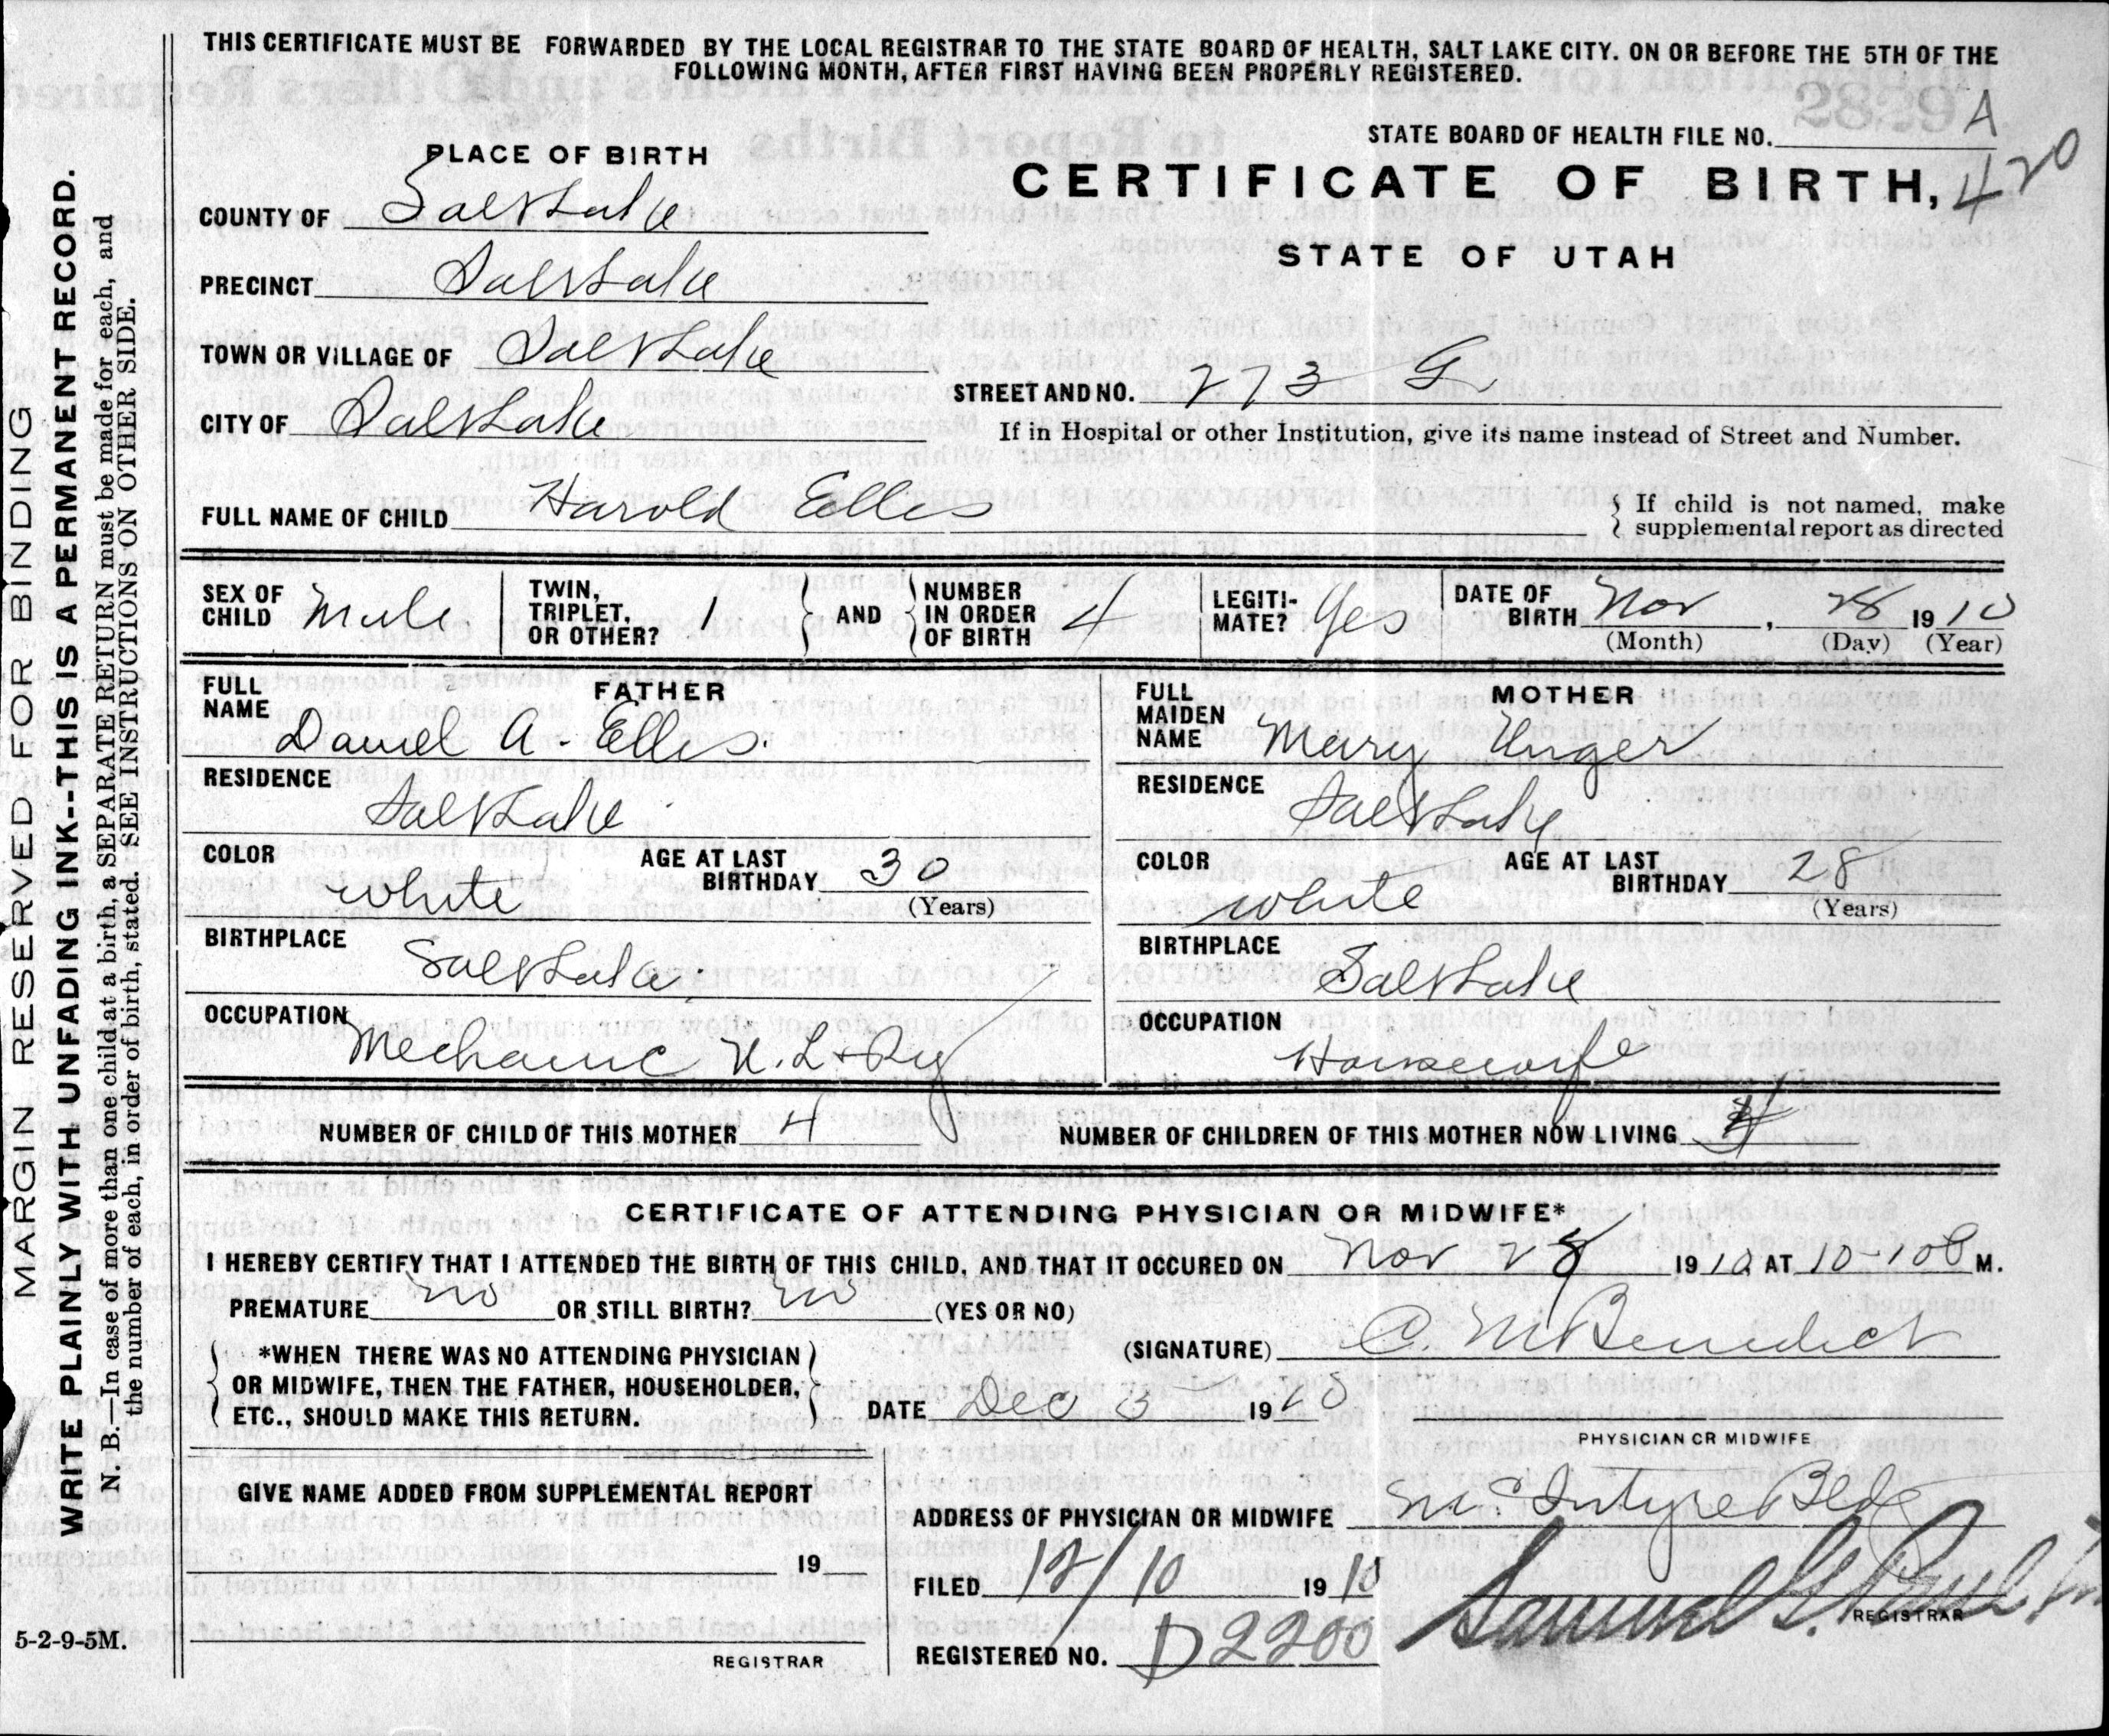 THIS CERTIFICATE MUST BE FORWARDED BY THE LOCAL REGISTRAR TO THE STATE BOARD OF HEALTH, SALT LAKE CITY. ON OR BEFORE THE 5TH OF THE
FOLLOWING MONTH, AFTER FIRST HAVING BEEN PROPERLY REGISTERED.
STATE BOARD OF HEALTH FILE NO. A
420
PLACE OF BIRTH
CERTIFICATE OF BIRTH,
STATE OF UTAH
COUNTY OF Salt Lake
PRECINCT Salt Lake
TOWN OR VILLAGE OF Salt Lake
STREET AND NO. 273 G
CITY OF Salt Lake
If in Hospital or other Institution, give its name instead of Street and Number.
FULL NAME OF CHILD Harold Elles
If child is not named, make
supplemental report as directed
SEX OF CHILD Male
TWIN, TRIPLET, OR OTHER? 1
AND NUMBER IN ORDER OF BIRTH 4
LEGITIMATE? Yes
DATE OF BIRTH Nov, 28 1910
(Month) (Day) (Year)
FATHER
FULL NAME Daniel A. Elles.
RESIDENCE Salt Lake
COLOR White
AGE AT LAST BIRTHDAY 30
(Years)
BIRTHPLACE Salt Lake
OCCUPATION Mechanic U. L & Ry
MOTHER
FULL MAIDEN NAME Mary Unger
RESIDENCE Salt Lake
COLOR White
AGE AT LAST BIRTHDAY 28
(Years)
BIRTHPLACE Salt Lake
OCCUPATION Housewife
NUMBER OF CHILD OF THIS MOTHER 4
NUMBER OF CHILDREN OF THIS MOTHER NOW LIVING 4
CERTIFICATE OF ATTENDING PHYSICIAN OR MIDWIFE*
I HEREBY CERTIFY THAT I ATTENDED THE BIRTH OF THIS CHILD, AND THAT IT OCCURED ON Nov 28 1910 AT 10-10 P M.
PREMATURE no OR STILL BIRTH? no (YES OR NO)
*WHEN THERE WAS NO ATTENDING PHYSICIAN
OR MIDWIFE, THEN THE FATHER, HOUSEHOLDER,
ETC., SHOULD MAKE THIS RETURN.
(SIGNATURE) C. M Benedict
DATE Dec 5 1910
PHYSICIAN OR MIDWIFE
GIVE NAME ADDED FROM SUPPLEMENTAL REPORT
19
REGISTRAR
ADDRESS OF PHYSICIAN OR MIDWIFE McIntyre Bldg
FILED 12/10 1910
Samuel G. Paul
REGISTRAR
REGISTERED NO. D2200
5-2-9-5M.
MARGIN RESERVED FOR BINDING
WRITE PLAINLY WITH UNFADING INK--THIS IS A PERMANENT RECORD.
N. B.—In case of more than one child at a birth, a SEPARATE RETURN must be made for each, and
the number of each, in order of birth, stated. SEE INSTRUCTIONS ON OTHER SIDE.